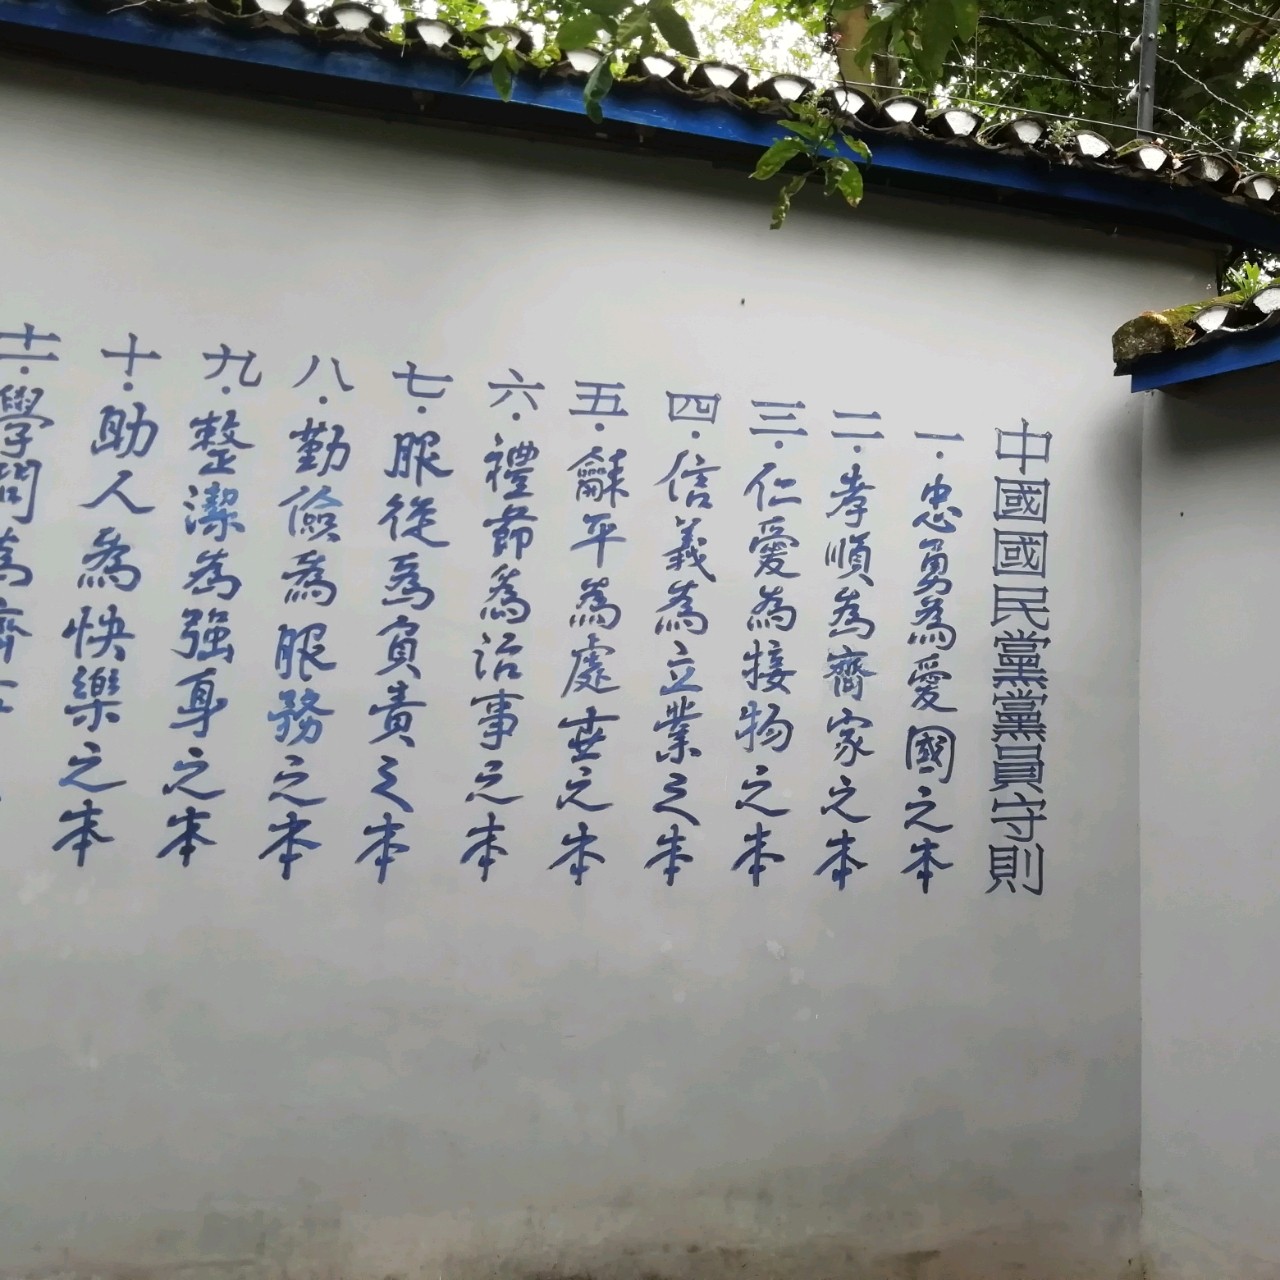 中國國民黨黨員守則
一·忠勇為愛國之本
二·孝順為齊家之本
三·仁愛為接物之本
四·信義為立業之本
五·龢平為處世之本
六·禮節為治事之本
七·服從為負責之本
八·勤儉為服務之本
九·整潔為強身之本
十·助人為快樂之本
十一·學問為濟